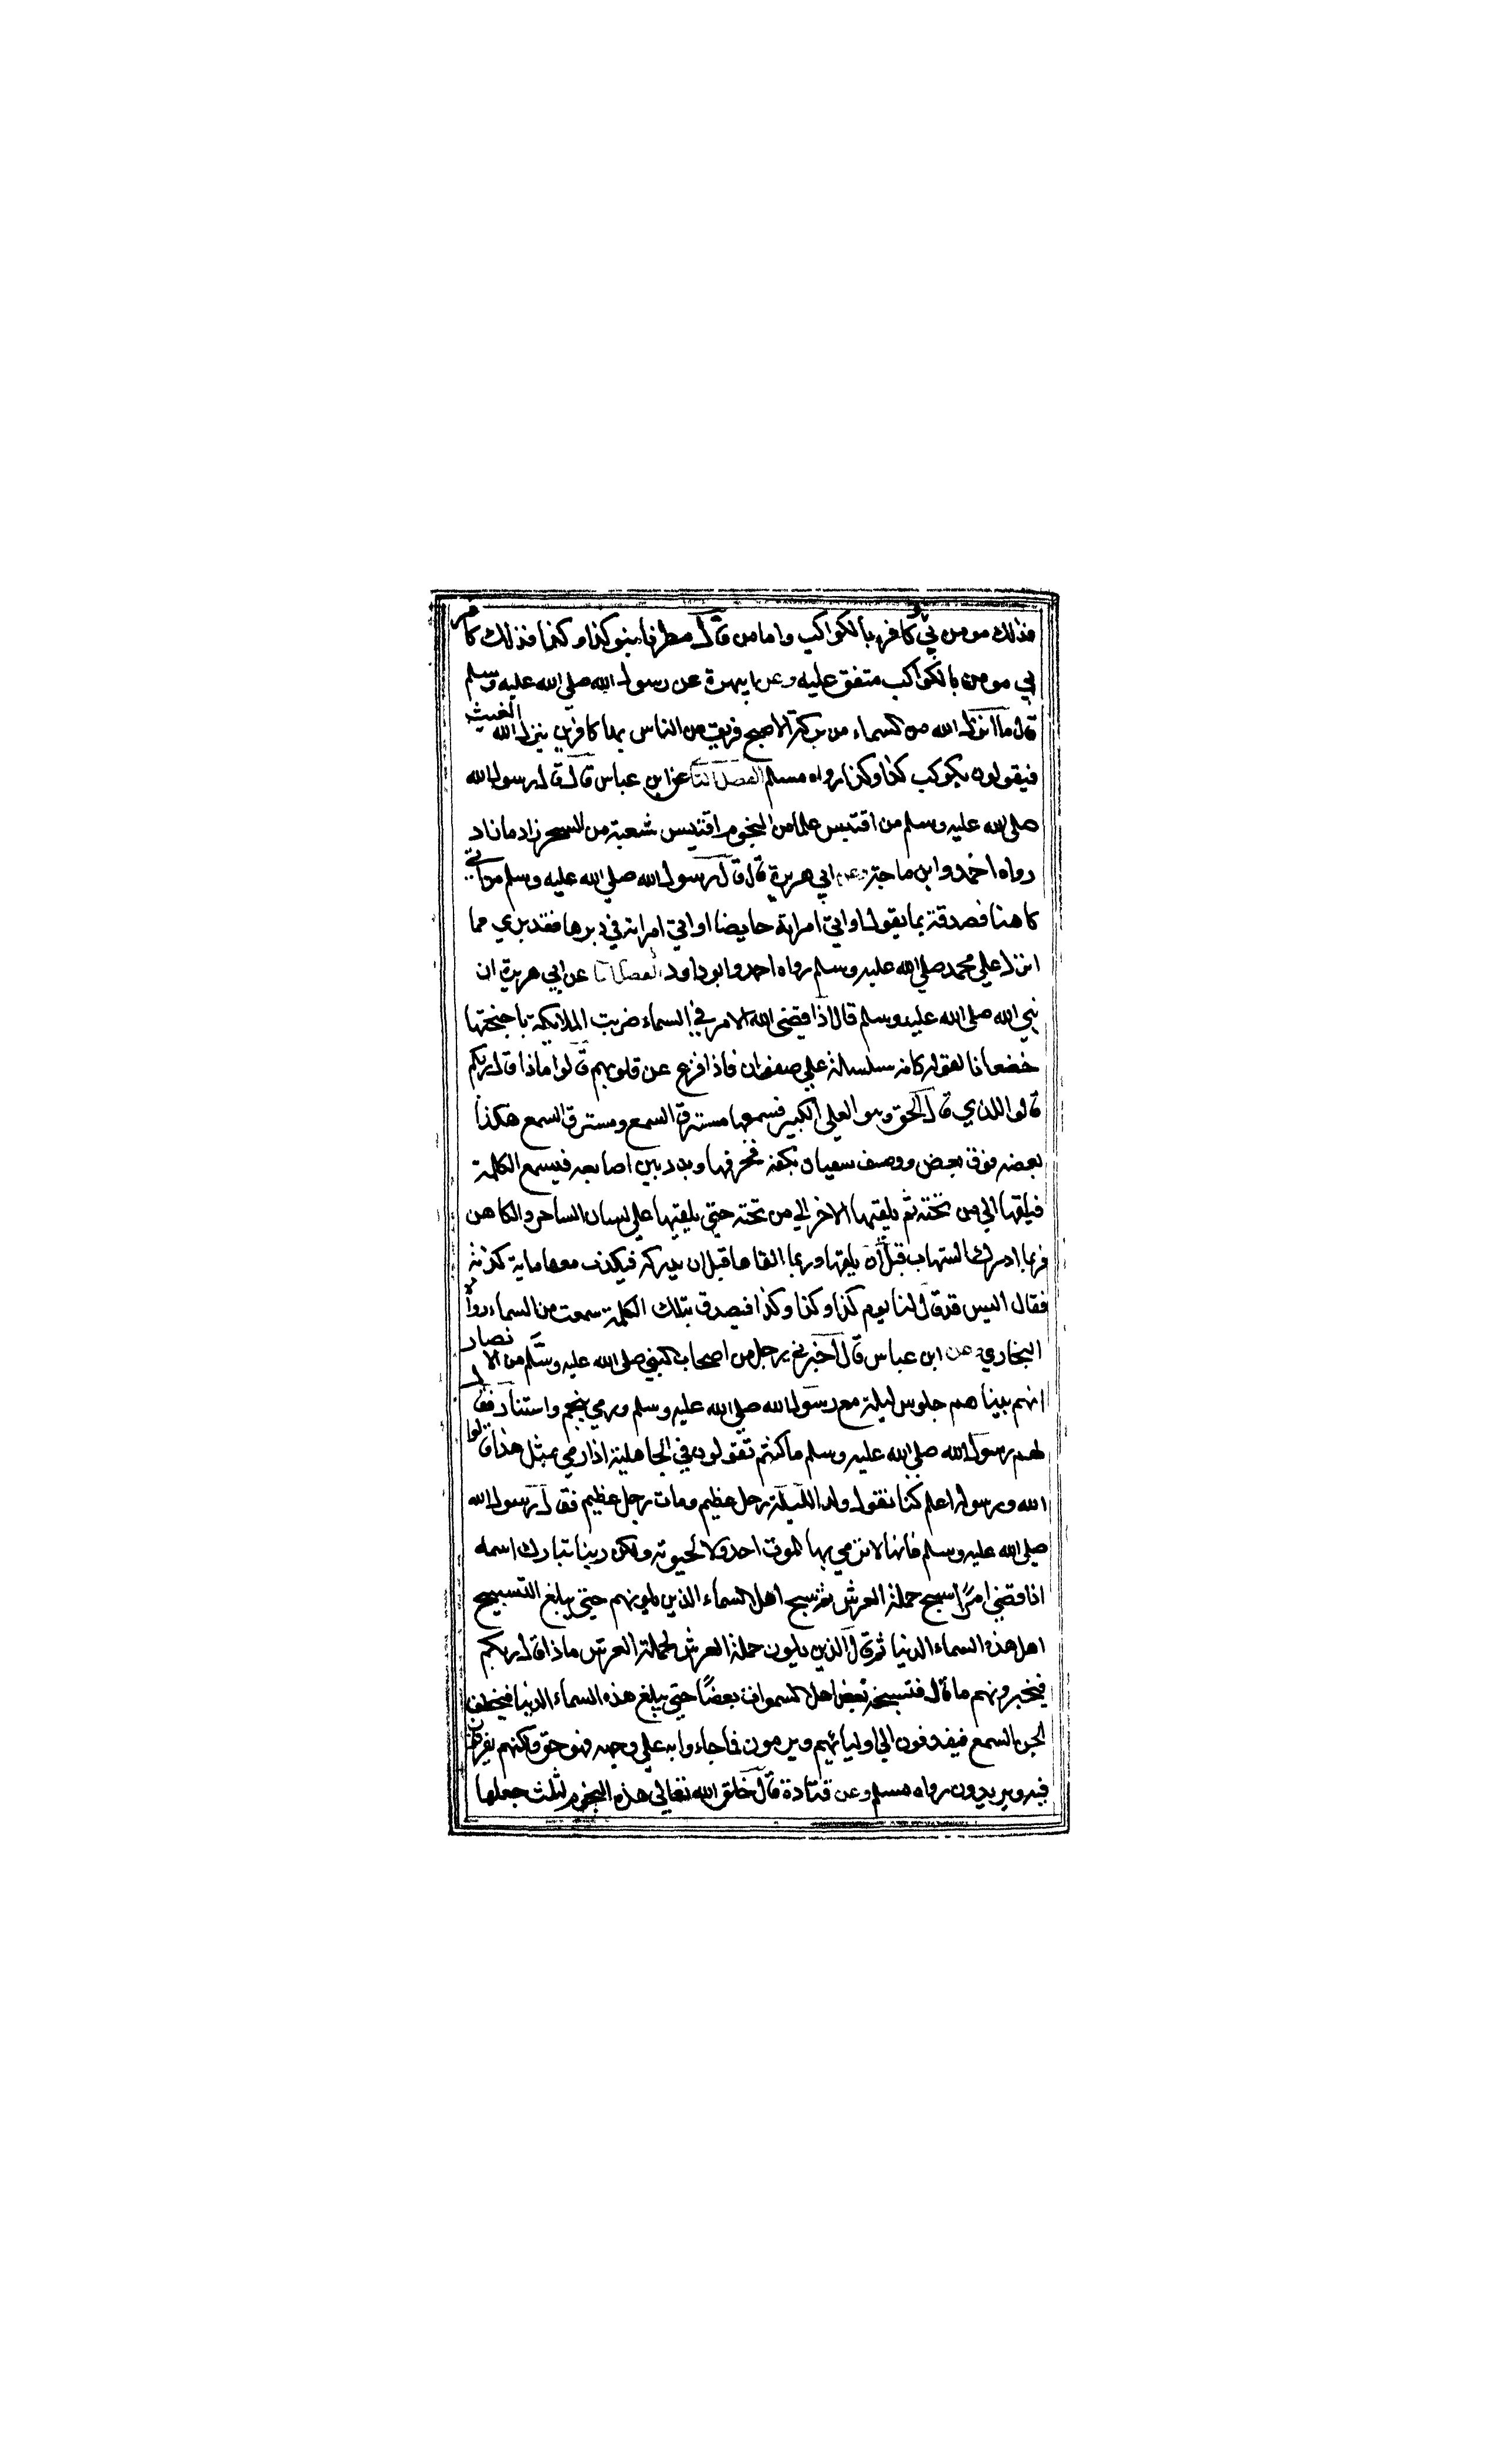 فذلك مومن بي كافر بالكواكب واما من قال مطرنا بنو كذا وكذا فذلك كافر
بي مومن بالكواكب متفق عليه وعن ابي هريرة عن رسول الله صلي الله عليه وسلم
قال ما انزل الله من السماء من بركة الا اصبح فريق من الناس بها كافرين ينزل الله الغيث
فيقولون بكوكب كذا وكذا رواه مسلم الفصل الثا عن ابن عباس قال قال رسول الله
صلي الله عليه وسلم من اقتبس علما من النجوم اقتبس شعبة من السحر زاد ما زاد
رواه احمد وابن ماجة وعن ابي هريرة قال قال رسول الله صلي الله عليه وسلم من اتي
كاهنا فصدقه بما يقول او اتي امراته حايضا او اتي امراته في دبرها فقد بري مما
انزل علي محمد صلي الله عليه وسلم رواه احمد وابو داود الفصل الثا عن ابي هريرة ان
نبي الله صلي الله عليه وسلم قال اذا قضي الله الامر في السماء ضربت الملايكة باجنحتها
خضعانا لقوله كانه سلسلة علي صفوان فاذا فزع عن قلوبهم قالوا ماذا قال ربكم
قالوا للذي قال الحق وهو العلي الكبير فسمعها مسترق السمع ومسترق السمع هكذا
بعضه فوق بعض ووصف سفيان بكفه فحرفها وبدد بين اصابعه فيسمع الكلمة
فيلقيها الي من تحته ثم يلقيها الاخر الي من تحته حتي يلقيها علي لسان الساحر والكاهن
فربما ادرك الشهاب قبل ان يلقيها وربما القاها قبل ان يدركه فيكذب معها ماية كذبة
فقال اليس قد قال لنا يوم كذا وكذا وكذا فيصدق بتلك الكلمة سمعت من السماء رواه
البخاري عن ابن عباس قال اخبرني رجل من اصحاب النبي صلي الله عليه وسلم من الانصار
انهم بينا هم جلوس ليلة مع رسول الله صلي الله عليه وسلم ورمي بنجم واستنار فقال
لهم رسول الله صلي الله عليه وسلم ما كنتم تقولون في الجاهلية اذا رمي بمثل هذا قالوا
الله ورسوله اعلم كنا نقول ولد الليلة رجل عظيم ومات رجل عظيم فقال رسول الله
صلي الله عليه وسلم فانها لا نرمي بها لموت احد ولا لحيوته ولكن ربنا تبارك اسمه
اذا قضي امرًا سبح حملة العرش ثم سبح اهل السماء الذين يلونهم حتي يبلغ التسبيح
اهل هذه السماء الدنيا ثم قال الذين يلون حملة العرش لحملة العرش ماذا قال ربكم
فيخبرونهم ما قال فتسبخر بعض اهل السموات بعضًا حتي يبلغ هذه السماء الدنيا فيخطف
الجن السمع فيقذفون الي اوليائهم ويرمون فما جاءوا به علي وجهه فهو حق ولكنهم يقرفون
فيه ويزيدون رواه مسلم وعن قتادة قال خلق الله تعالي هذه النجوم لثلث جعلها